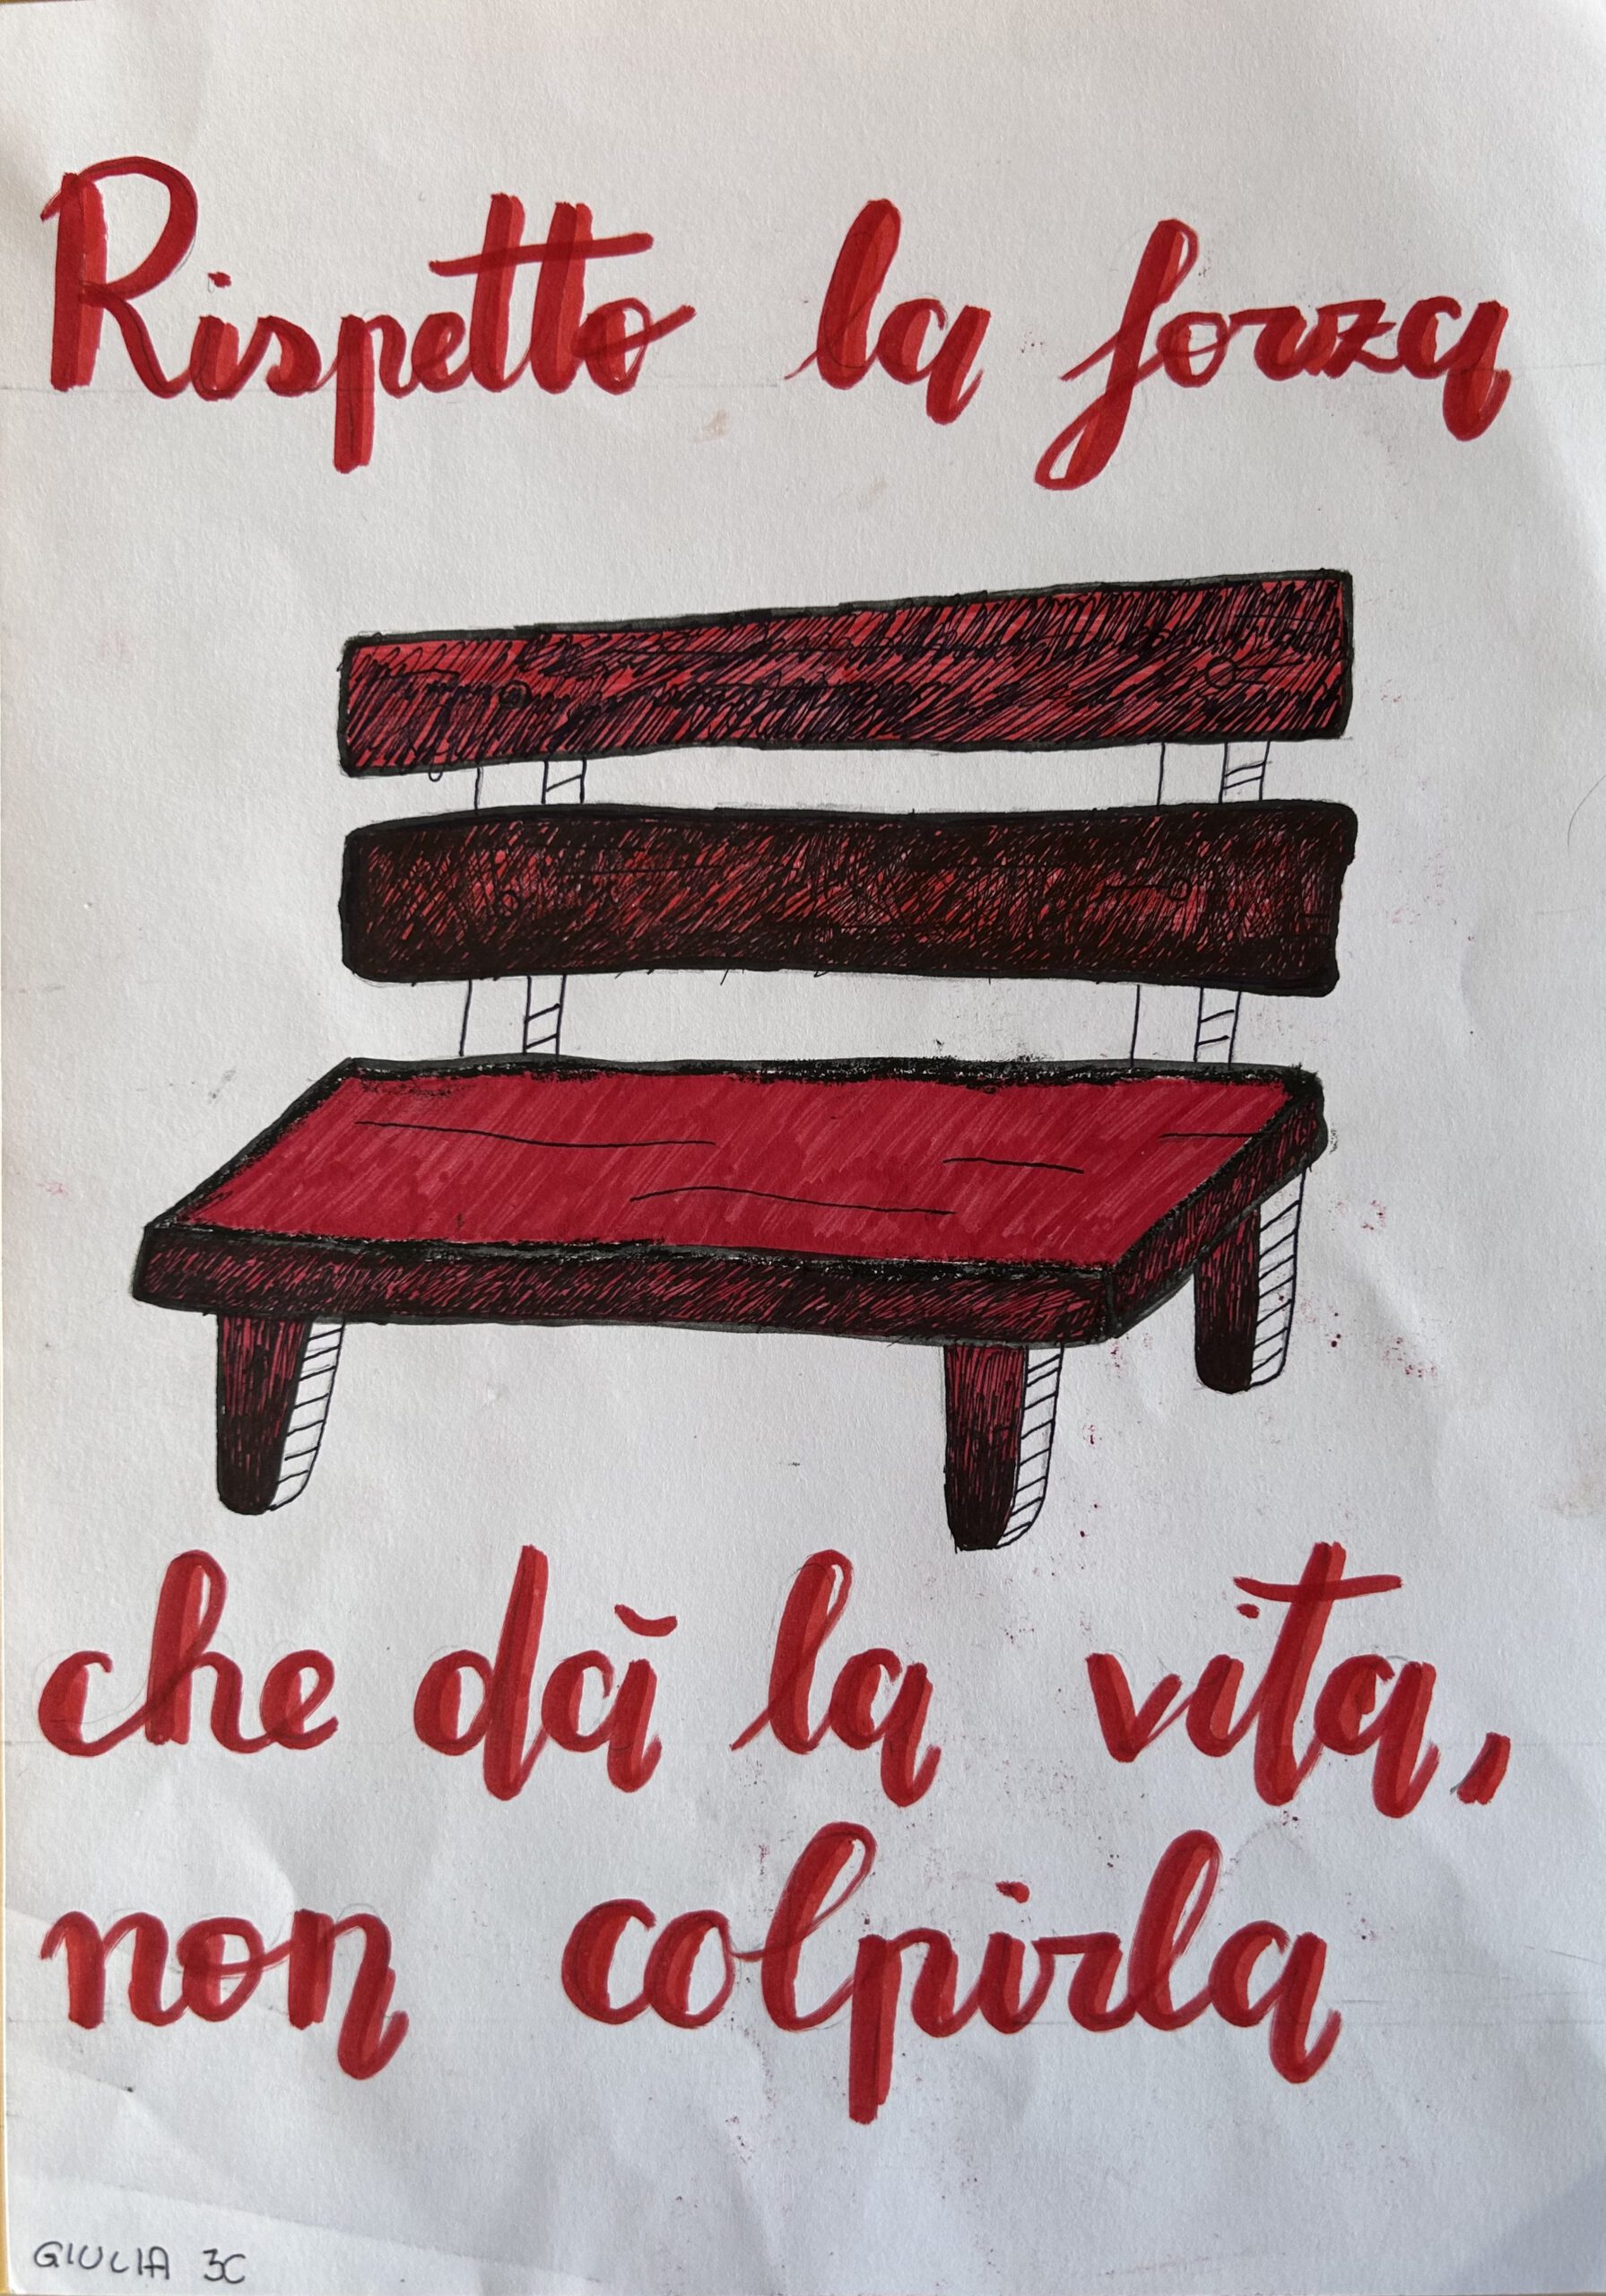 Rispetto la forza
che dà la vita,
non colpirla
GIULIA 3C